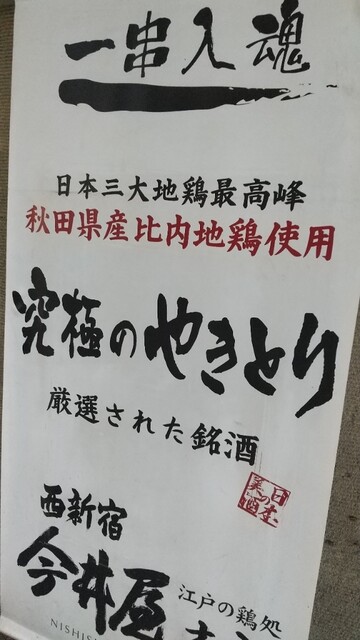 一串入魂
日本三大地鶏最高峰
秋田県産比内地鶏使用
究極のやきとり
厳選された銘酒
日本の美酒
西新宿
今井屋
江戸の鶏処
NISHIS